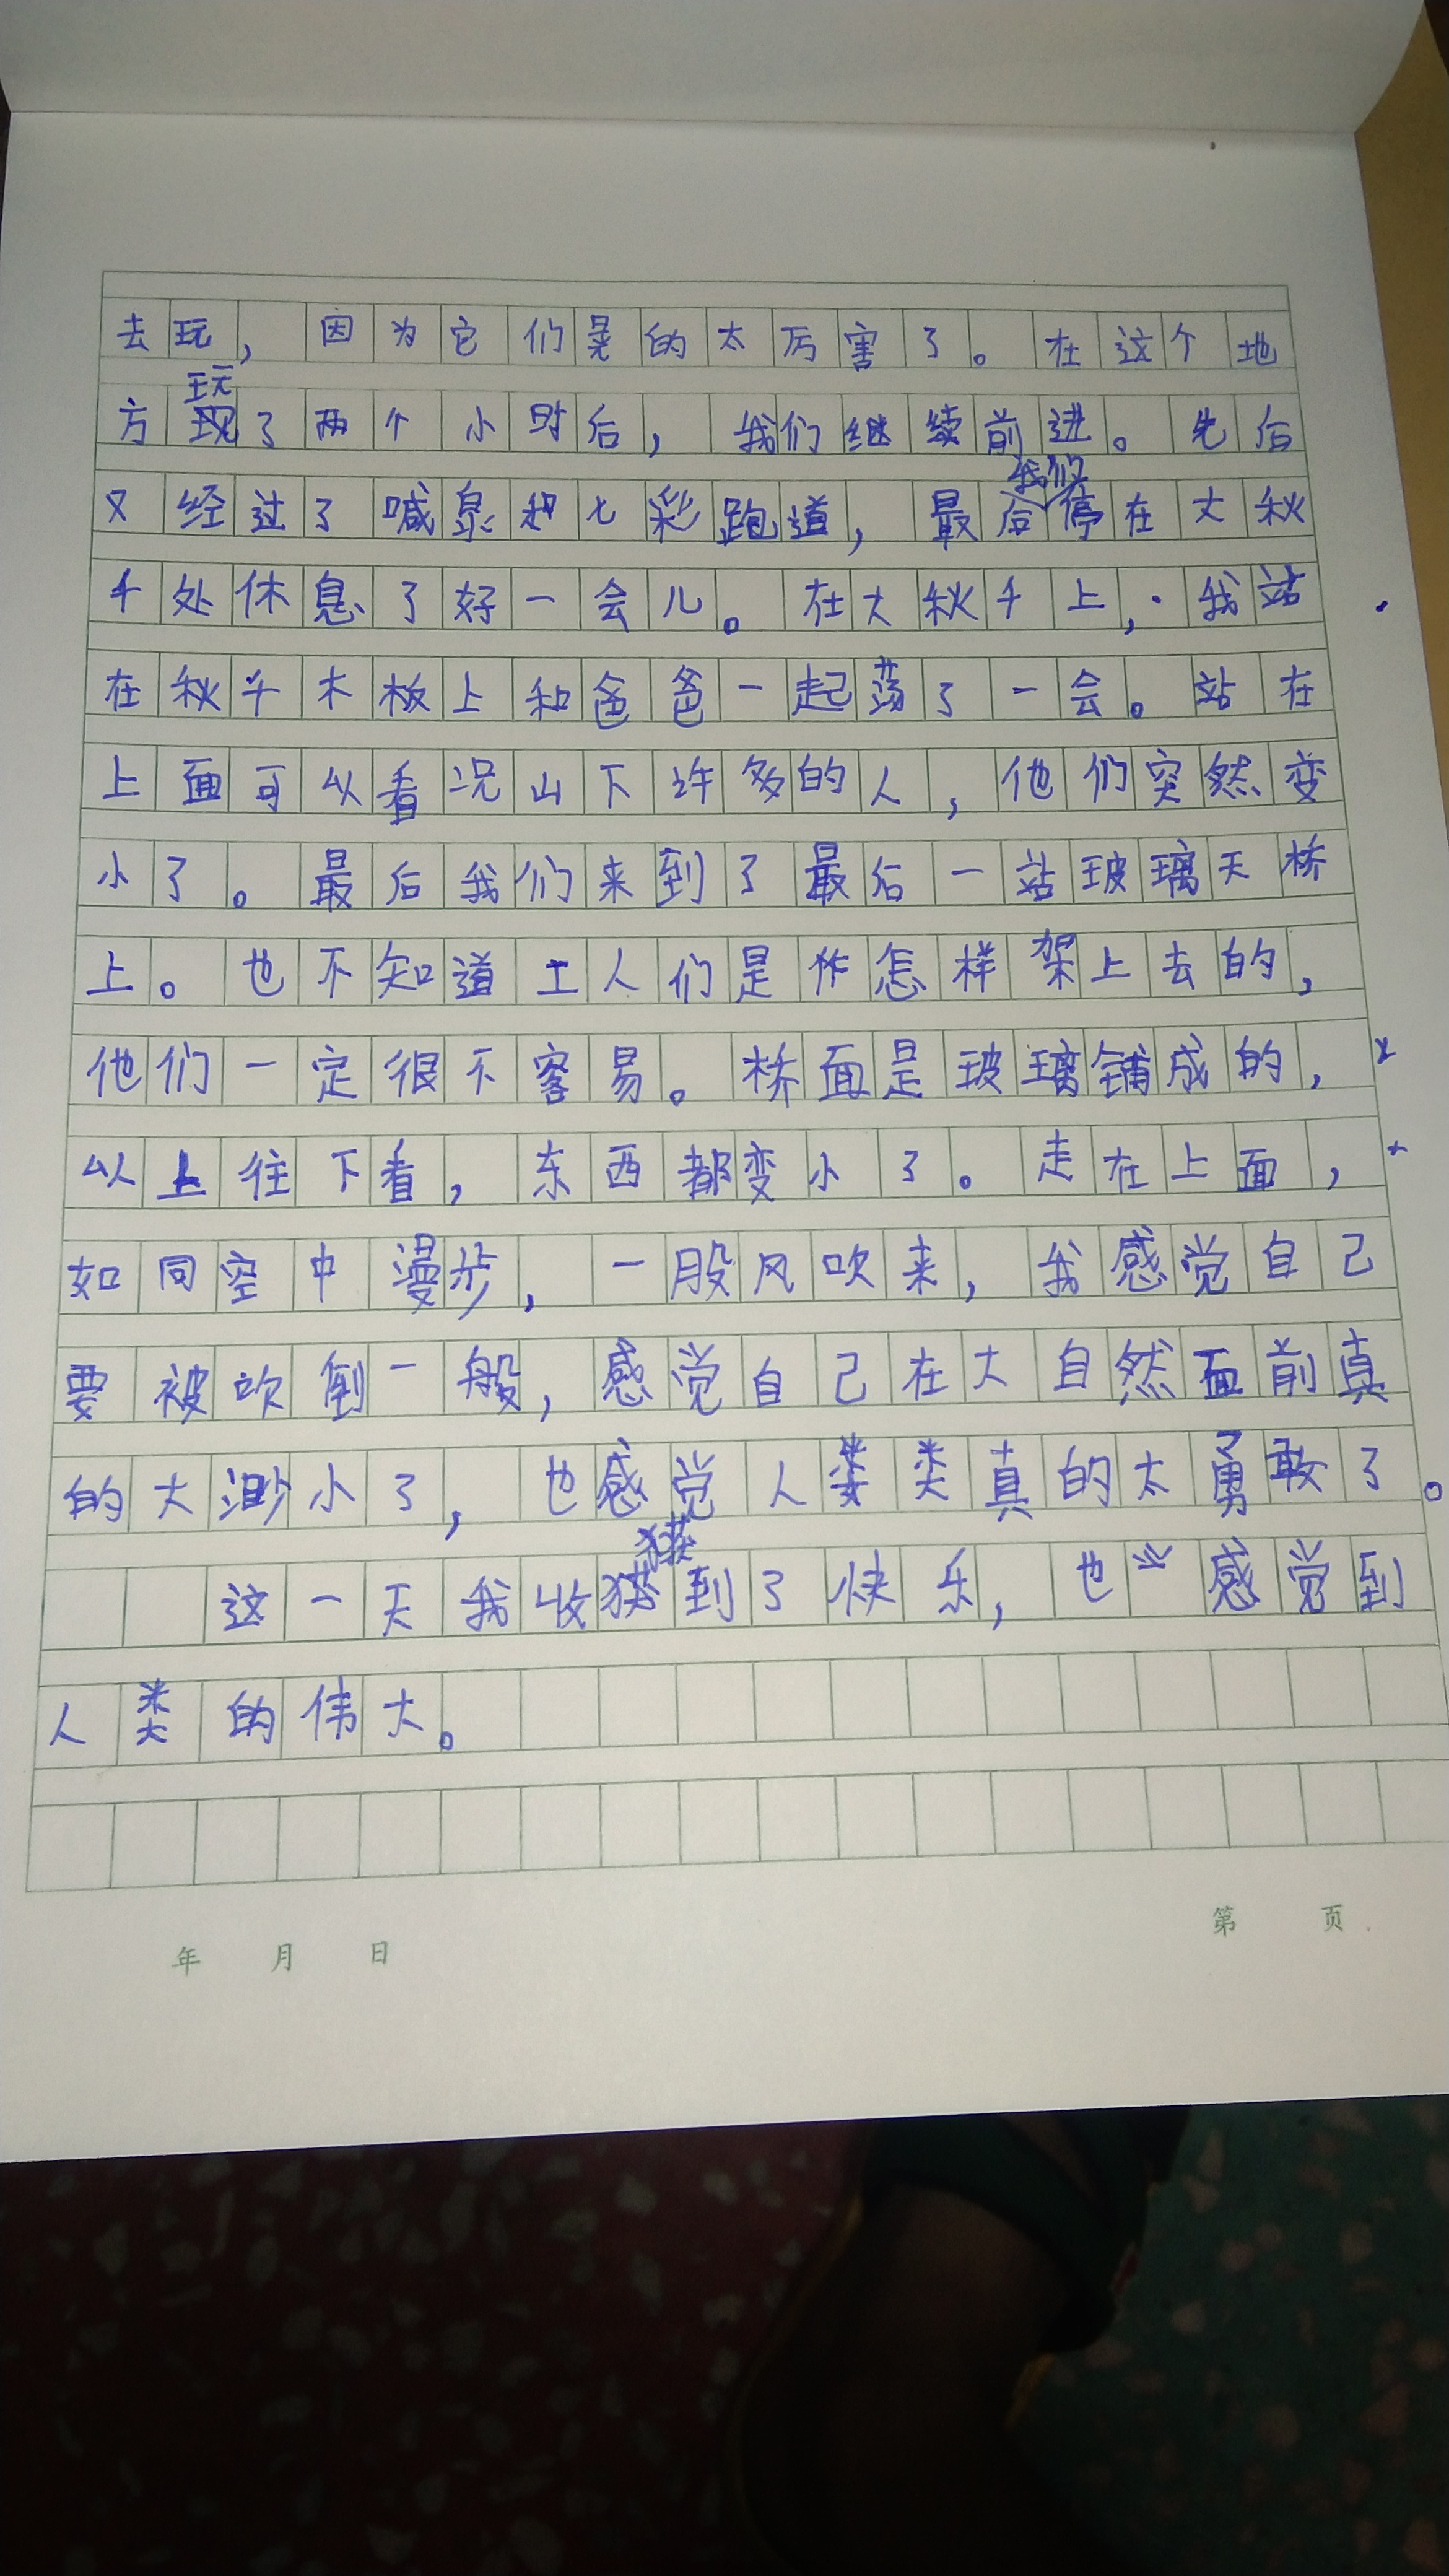 去玩，因为它们晃的太厉害了。在这个地
玩
方现了两个小时后，我们继续前进。先后
我们
又经过了喊泉和七彩跑道，最后停在大秋
千处休息了好一会儿。在大秋千上，我站
在秋千木板上和爸爸一起荡了一会。站在
上面可以看况山下许多的人，他们突然变
小了。最后我们来到了最后一站玻璃天桥
上。也不知道工人们是作怎样架上去的，
他们一定很不容易。桥面是玻璃铺成的，
以上往下看，东西都变小了。走在上面，
如同空中漫步，一股风吹来，我感觉自己
要被吹倒一般，感觉自己在大自然面前真
的大渺小了，也感觉人类真的太勇敢了。
获
这一天我收获到了快乐，也感觉到
人类的伟大。
年 月 日
第 页